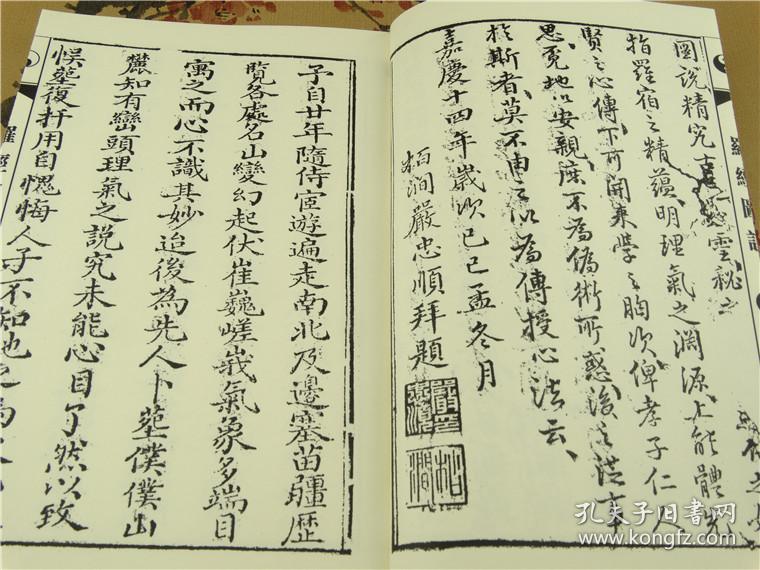 圖說精究
指羅宿之精蘊明理氣之淵源上能體先
賢之心傳下可開來學之胸次俾孝子仁人
思覓地以安親庶不為偽術所惑後之從事
於斯者莫不由之以為傳授心法云
嘉慶十四年歲次己巳孟冬月
栢澗嚴忠順拜題
羅經圖說
予自廿年隨侍宦遊遍走南北及邊塞苗疆歷
覽各處名山變幻起伏崔巍嵯峩氣象多端目
寓之而心不識其妙迨後為先人卜塟僕僕山
麓知有巒頭理氣之說究未能心目了然以致
悞塟復扦用自愧悔人子不知地之
羅經
孔夫子旧书网
www.kongfz.com